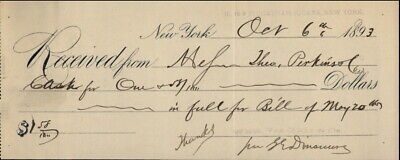 New-York Oct 6th 1893
Received from Messrs Theo. Perkinson
Cash for One & 58/100 Dollars
in full for Bill of May 20th
$1 58/100 Thanks
per